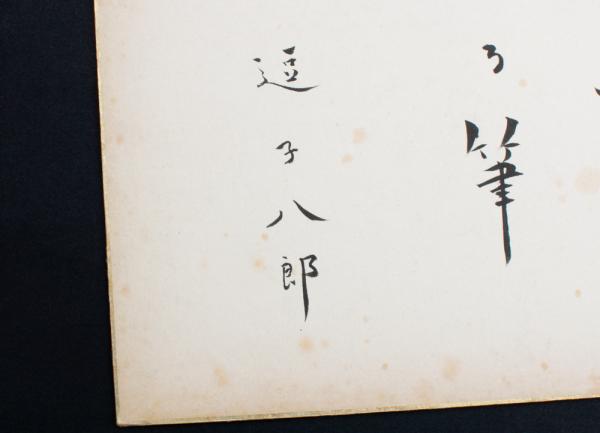 る筆
逗子八郎